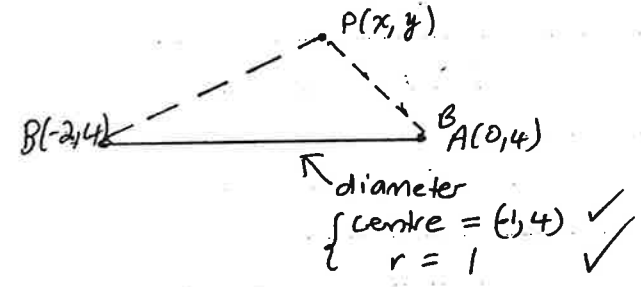 P(x, y)
B(-2,4)
B
A(0,4)
diameter
{ centre = (-1,4) ✓
r = 1 ✓